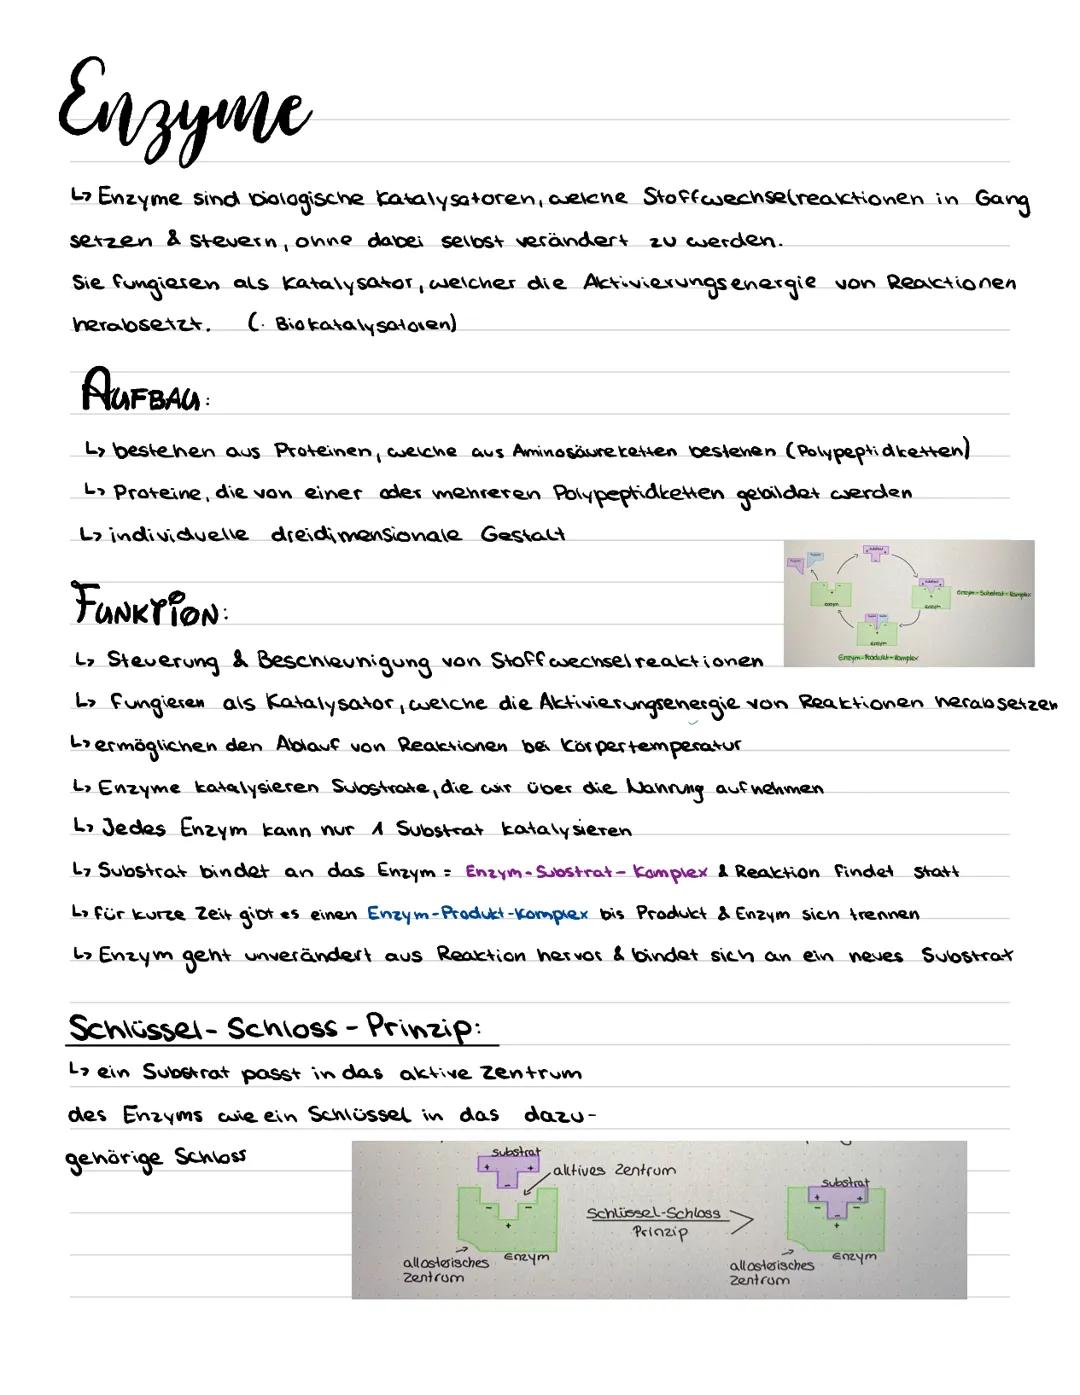 Enzyme
↳ Enzyme sind biologische Katalysatoren, welche Stoffwechselreaktionen in Gang
setzen & steuern, ohne dabei selbst verändert zu werden.
Sie fungieren als Katalysator, welcher die Aktivierungsenergie von Reaktionen
herabsetzt. (· Biokatalysatoren)
AUFBAU:
↳ bestehen aus Proteinen, welche aus Aminosäureketten bestehen (Polypeptidketten)
↳ Proteine, die von einer oder mehreren Polypeptidketten gebildet werden
↳ individuelle dreidimensionale Gestalt
Substrat
Enzym
Substrat
Enzym
Enzym-Substrat-Komplex
Enzym
Enzym-Produkt-Komplex
FUNKTION:
↳ Steuerung & Beschleunigung von Stoffwechselreaktionen
↳ fungieren als Katalysator, welche die Aktivierungsenergie von Reaktionen herabsetzen
↳ ermöglichen den Ablauf von Reaktionen bei Körpertemperatur
↳ Enzyme katalysieren Substrate, die wir über die Nahrung aufnehmen
↳ Jedes Enzym kann nur 1 Substrat katalysieren
↳ Substrat bindet an das Enzym = Enzym-Substrat-Komplex & Reaktion findet statt
↳ für kurze Zeit gibt es einen Enzym-Produkt-Komplex bis Produkt & Enzym sich trennen
↳ Enzym geht unverändert aus Reaktion hervor & bindet sich an ein neues Substrat
Schlüssel-Schloss-Prinzip:
↳ ein Substrat passt in das aktive Zentrum
des Enzyms wie ein Schlüssel in das dazu-
gehörige Schloss
Substrat
aktives Zentrum
Enzym
allosterisches
Zentrum
Schlüssel-Schloss
Prinzip
Substrat
Enzym
allosterisches
Zentrum